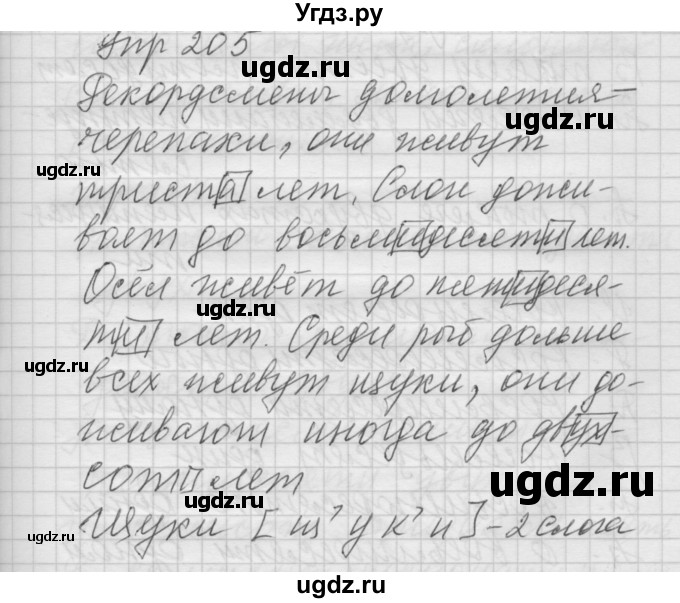 Угдз.ру
Упр 205
Рекордсмены домолетия –
черепахи, они живут
триста лет. Слон дожи-
вает до восьмидесяти лет.
Осёл живёт до пятидеся-
ти лет. Среди рыб дольше
всех живут щуки, они до-
живают иногда до двух-
сот лет
Щуки [щ’ук’и] – 2 слога
ugdz.ru
ugdz.ru
ugdz.ru
ugdz.ru
ugdz.ru
ugdz.ru
ugdz.ru
ugdz.ru
ugdz.ru